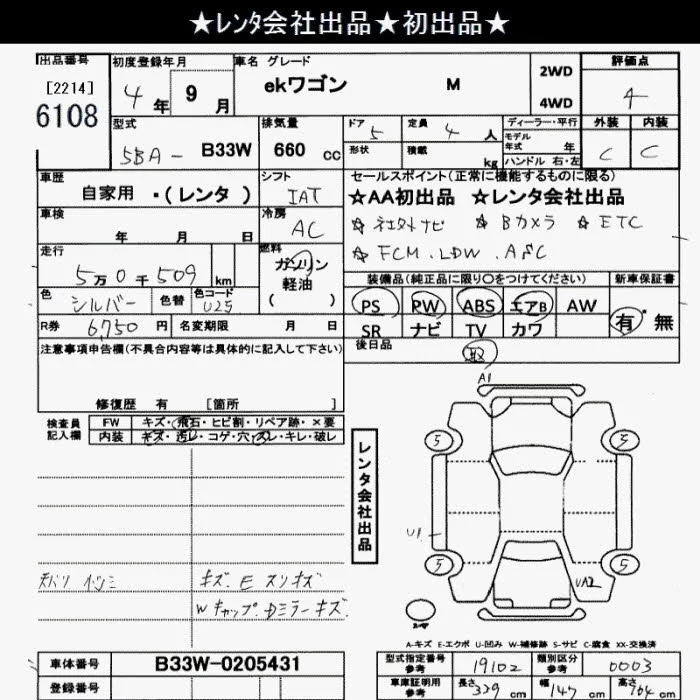 ★レンタ会社出品★初出品★
出品番号
[2214]
6108
初度登録年月
4年 9月
車名 グレード
ekワゴン M
2WD
4WD
評価点
4
型式
5BA- B33W
排気量
660 cc
ドア 5
定員 4 人
形状
積載 kg
ディーラー・平行
モデル
年式 年
ハンドル 右・左
外装 内装
C C
車歴
自家用 ・(レンタ )
シフト
IAT
セールスポイント(正常に機能するものに限る)
☆AA初出品 ☆レンタ会社出品
☆社外ナビ ☆Bカメラ ☆ETC
☆FCM.LDW.ASC
車検
年 月 日
冷房
AC
走行
5万0千509 km
燃料
ガソリン
軽油
( )
色 シルバー
色替
色コード
U25
R券 6,750 円
名変期限 月 日
装備品(純正品に限り〇をつけてください)
PS PW ABS エアB AW
SR ナビ TV カワ
新車保証書
有・無
後日品
取
注意事項申告欄(不具合内容等は具体的に記入して下さい)
修復歴 有 [箇所 ]
検査員
記入欄
FW キズ・飛石・ヒビ割・リペア跡・×要
内装 キズ・汚レ・コゲ・穴・スレ・キレ・破レ
レンタ会社出品
A1
5 5
U1
5 5
UA2
キズ、E スリキズ
Wキャップ、Dミラーキズ
A-キズ E-エクボ U-凹み W-補修跡 S-サビ C-腐食 XX-交換済
車体番号 B33W-0205431
登録番号
型式指定番号
参考
19102
類別区分
参考
0003
車庫証明用
参考
長さ 339 cm 幅 147 cm 高さ 164 cm